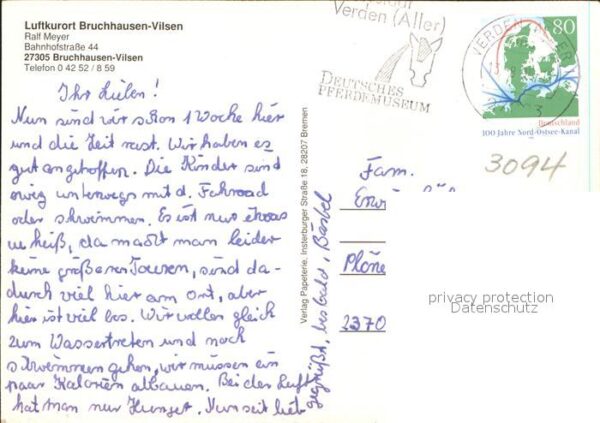 Luftkurort Bruchhausen-Vilsen
Ralf Meyer
Bahnhofstraße 44
27305 Bruchhausen-Vilsen
Telefon 0 42 52 / 8 59
Ihr Lieben!
Nun sind wir schon 1 Woche hier
und die Zeit rast. Wir haben es
gut angetroffen. Die Kinder sind
ewig unterwegs mit d. Fahrrad
oder schwimmen. Es ist nur etwas
zu heiß, da macht man leider
keine größeren Touren, sind da-
durch viel hier am Ort, aber
hier ist viel los. Wir wollen gleich
zum Wassertreten und noch
schwimmen gehen, wir müssen ein
paar Kalorien abbauen. Bei der Luft
hat man nur Hunger. Nun seid lieb
gegrüßt, bis bald, Bärbel
Verlag Papeterie, Insterburger Straße 18, 28207 Bremen
Verden (Aller)
DEUTSCHES
PFERDEMUSEUM
VERDEN
80
Deutschland
100 Jahre Nord-Ostsee-Kanal
3094
Fam.
Plöne
2370
privacy protection
Datenschutz